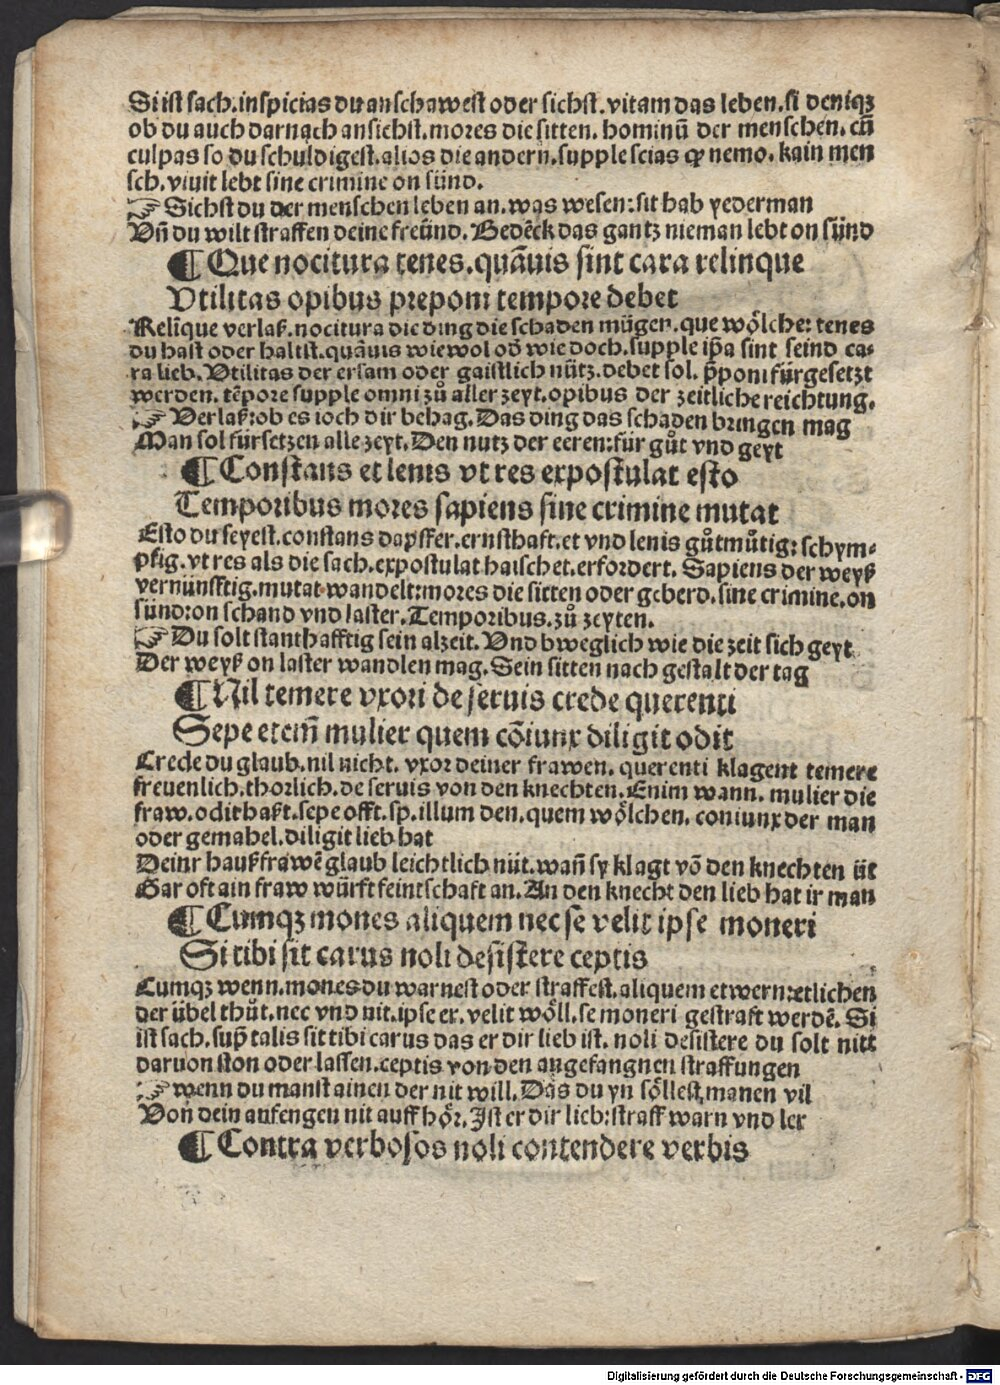 Si ist sach. inspicias du anschawest oder sichst. vitam das leben. si deniqꝫ
ob du auch darnach ansichst. mores die sitten. hominū der menschen. cū
culpas so du schuldigest. alios die andern. supple scias ꝙ nemo. kain men
sch. viuit lebt sine crimine on sünd.
☞ Sichst du der menschen leben an. was wesen: sit hab yederman
Vn̄ du wilt straffen deine freünd. Bedēck das gantz nieman lebt on sünd
¶ Que nocitura tenes. quāuis sint cara relinque
Vtilitas opibus preponi tempore debet
Relīque verlaß. nocitura die ding die schaden mügen. que wölche: tenes
du hast oder haltst. quāuis wiewol od̄ wie doch. supple ip̄a sint seind ca⸗
ra lieb. Vtilitas der ersam oder gaistlich nütz. debet sol. p̄poni fürgesetzt
werden. tēpore supple omni zů aller zeyt. opibus der zeitliche reichtung.
☞ Verlaß: ob es ioch dir behag. Das ding das schaden bringen mag
Man sol fürsetzen alle zeyt. Den nutz der eeren: für gůt vnd geyt
¶ Constans et lenis vt res expostulat esto
Temporibus mores sapiens sine crimine mutat
Esto du seyest. constans dapffer. ernsthaft. et vnd lenis gůtmůtig: schym⸗
pfig. vt res als die sach. expostulat haischet. erfordert. Sapiens der weyß
vernünfftig. mutat wandelt: mores die sitten oder geberd. sine crimine. on
sünd: on schand vnd laster. Temporibus. zů zeyten.
☞ Du solt stanthafftig sein alzeit. Vnd bweglich wie die zeit sich geyt
Der weyß on laster wandlen mag. Sein sitten nach gestalt der tag
¶ Nil temere vxori de seruis crede querenti
Sepe etem̄ mulier quem cōiunx diligit odit
Crede du glaub. nil nicht. vxor deiner frawen. querenti klagent temere
freuenlich. thorlich. de seruis von den knechten. Enim wann. mulier die
fraw. odit haßt. sepe offt. sp. illum den. quem wölchen. coniunx der man
oder gemahel. diligit lieb hat
Deinr haußfrawē glaub leichtlich nüt. wan̄ sy klagt vō den knechten üt
Gar oft ain fraw würft feintschaft an. An den knecht den lieb hat ir man
¶ Cumqꝫ mones aliquem nec se velit ipse moneri
Si tibi sit carus noli desistere ceptis
Cumqꝫ wenn. mones du warnest oder straffest. aliquem etwern: etlichen
der übel thůt. nec vnd nit. ipse er. velit wöll. se moneri gestraft werdē. Si
ist sach. sup̄ talis sit tibi carus das er dir lieb ist. noli desistere du solt nitt
daruon ston oder lassen. ceptis von den angefangnen straffungen
☞ wenn du manst ainen der nit will. Das du yn söllest manen vil
Von dein anfengen nit auff hör. Ist er dir lieb: straff warn vnd ler
¶ Contra verbosos noli contendere verbis
Digitalisierung gefördert durch die Deutsche Forschungsgemeinschaft - DFG